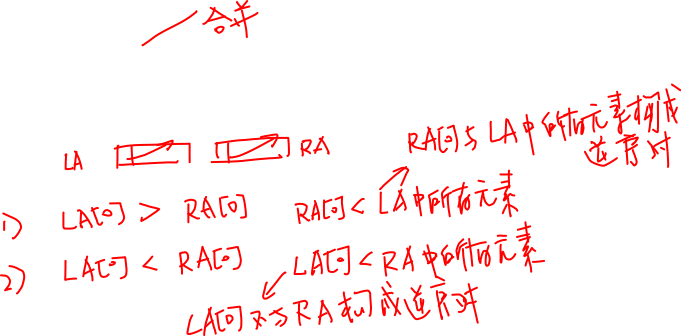 合并
LA RA
RA[0]与LA中的所有元素构成
逆序对
1) LA[0] > RA[0] RA[0] < LA中所有元素
2) LA[0] < RA[0] LA[0] < RA中的所有元素
LA[0]不与RA构成逆序对